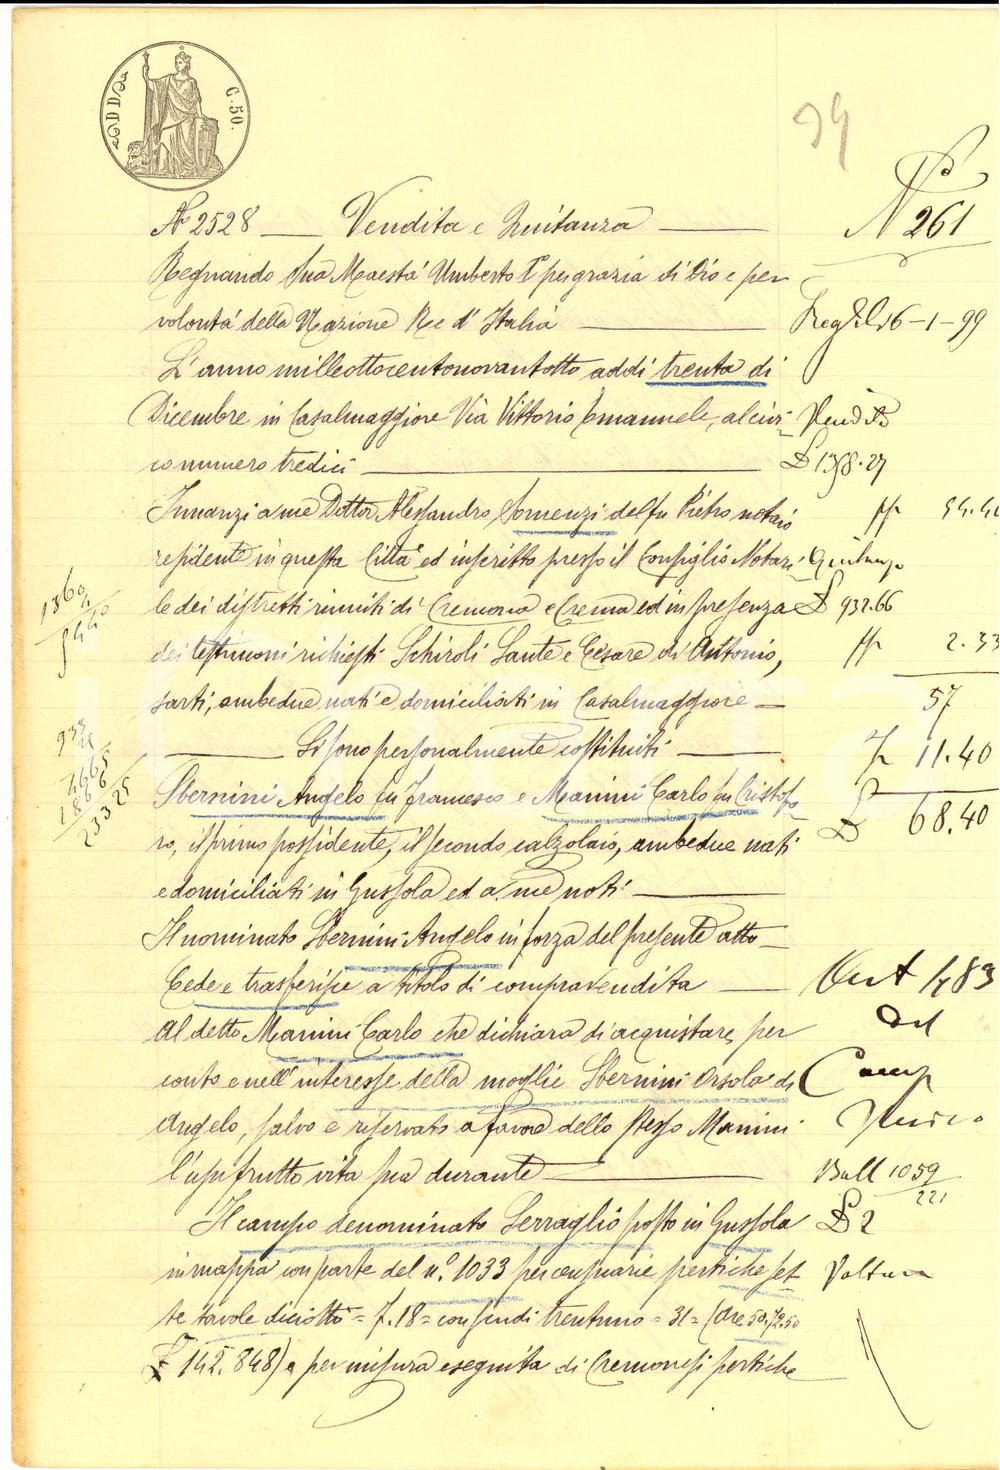 C. 50.
94
N° 261
N° 2528 — Vendita e Quitanza —
Regnando Sua Maestà Umberto I° per grazia di Dio e per
volontà della Nazione Re d'Italia —
L'anno milleottocentonovantotto addì trenta di
Dicembre in Casalmaggiore Via Vittorio Emanuele, al civi-
co numero tredici —
Innanzi a me Dottor Alessandro Somenzi del fu Pietro notaio
residente in questa Città ed inscritto presso il Consiglio Notari-
le dei distretti riuniti di Cremona e Crema ed in presenza
dei testimoni richiesti Schiroli Sante e Cesare di Antonio,
sarti, ambedue nati e domiciliati in Casalmaggiore —
— Si sono personalmente costituiti —
Sbernini Angelo fu Francesco e Manini Carlo fu Cristofo-
ro, il primo possidente, il secondo calzolaio, ambedue nati
e domiciliati in Gussola ed a me noti —
Il nominato Sbernini Angelo in forza del presente atto —
Cede e trasferisce a titolo di compravendita —
Al detto Manini Carlo che dichiara di acquistare per
conto e nell'interesse della moglie Sbernini Orsola di
Angelo, salvo e riservato a favore dello stesso Manini
l'usufrutto vita sua durante —
Il campo denominato Serraglio posto in Gussola
in mappa con parte del n.° 1033 per censuarie pertiche set-
te tavole diciotto = 7.18 = con scudi trentuno = 31 = (Are 50.72.50
£ 142.848) e per misura eseguita di Cremonesi pertiche
6-1-99
Vendita
£ 1358.27
Quitanza
£ 932.66
2.33
57
11.40
£ 68.40
Art 1483
del
Camp
Unico
Boll 1059
221
£ 2
Voltura
1360
933
1866
2325